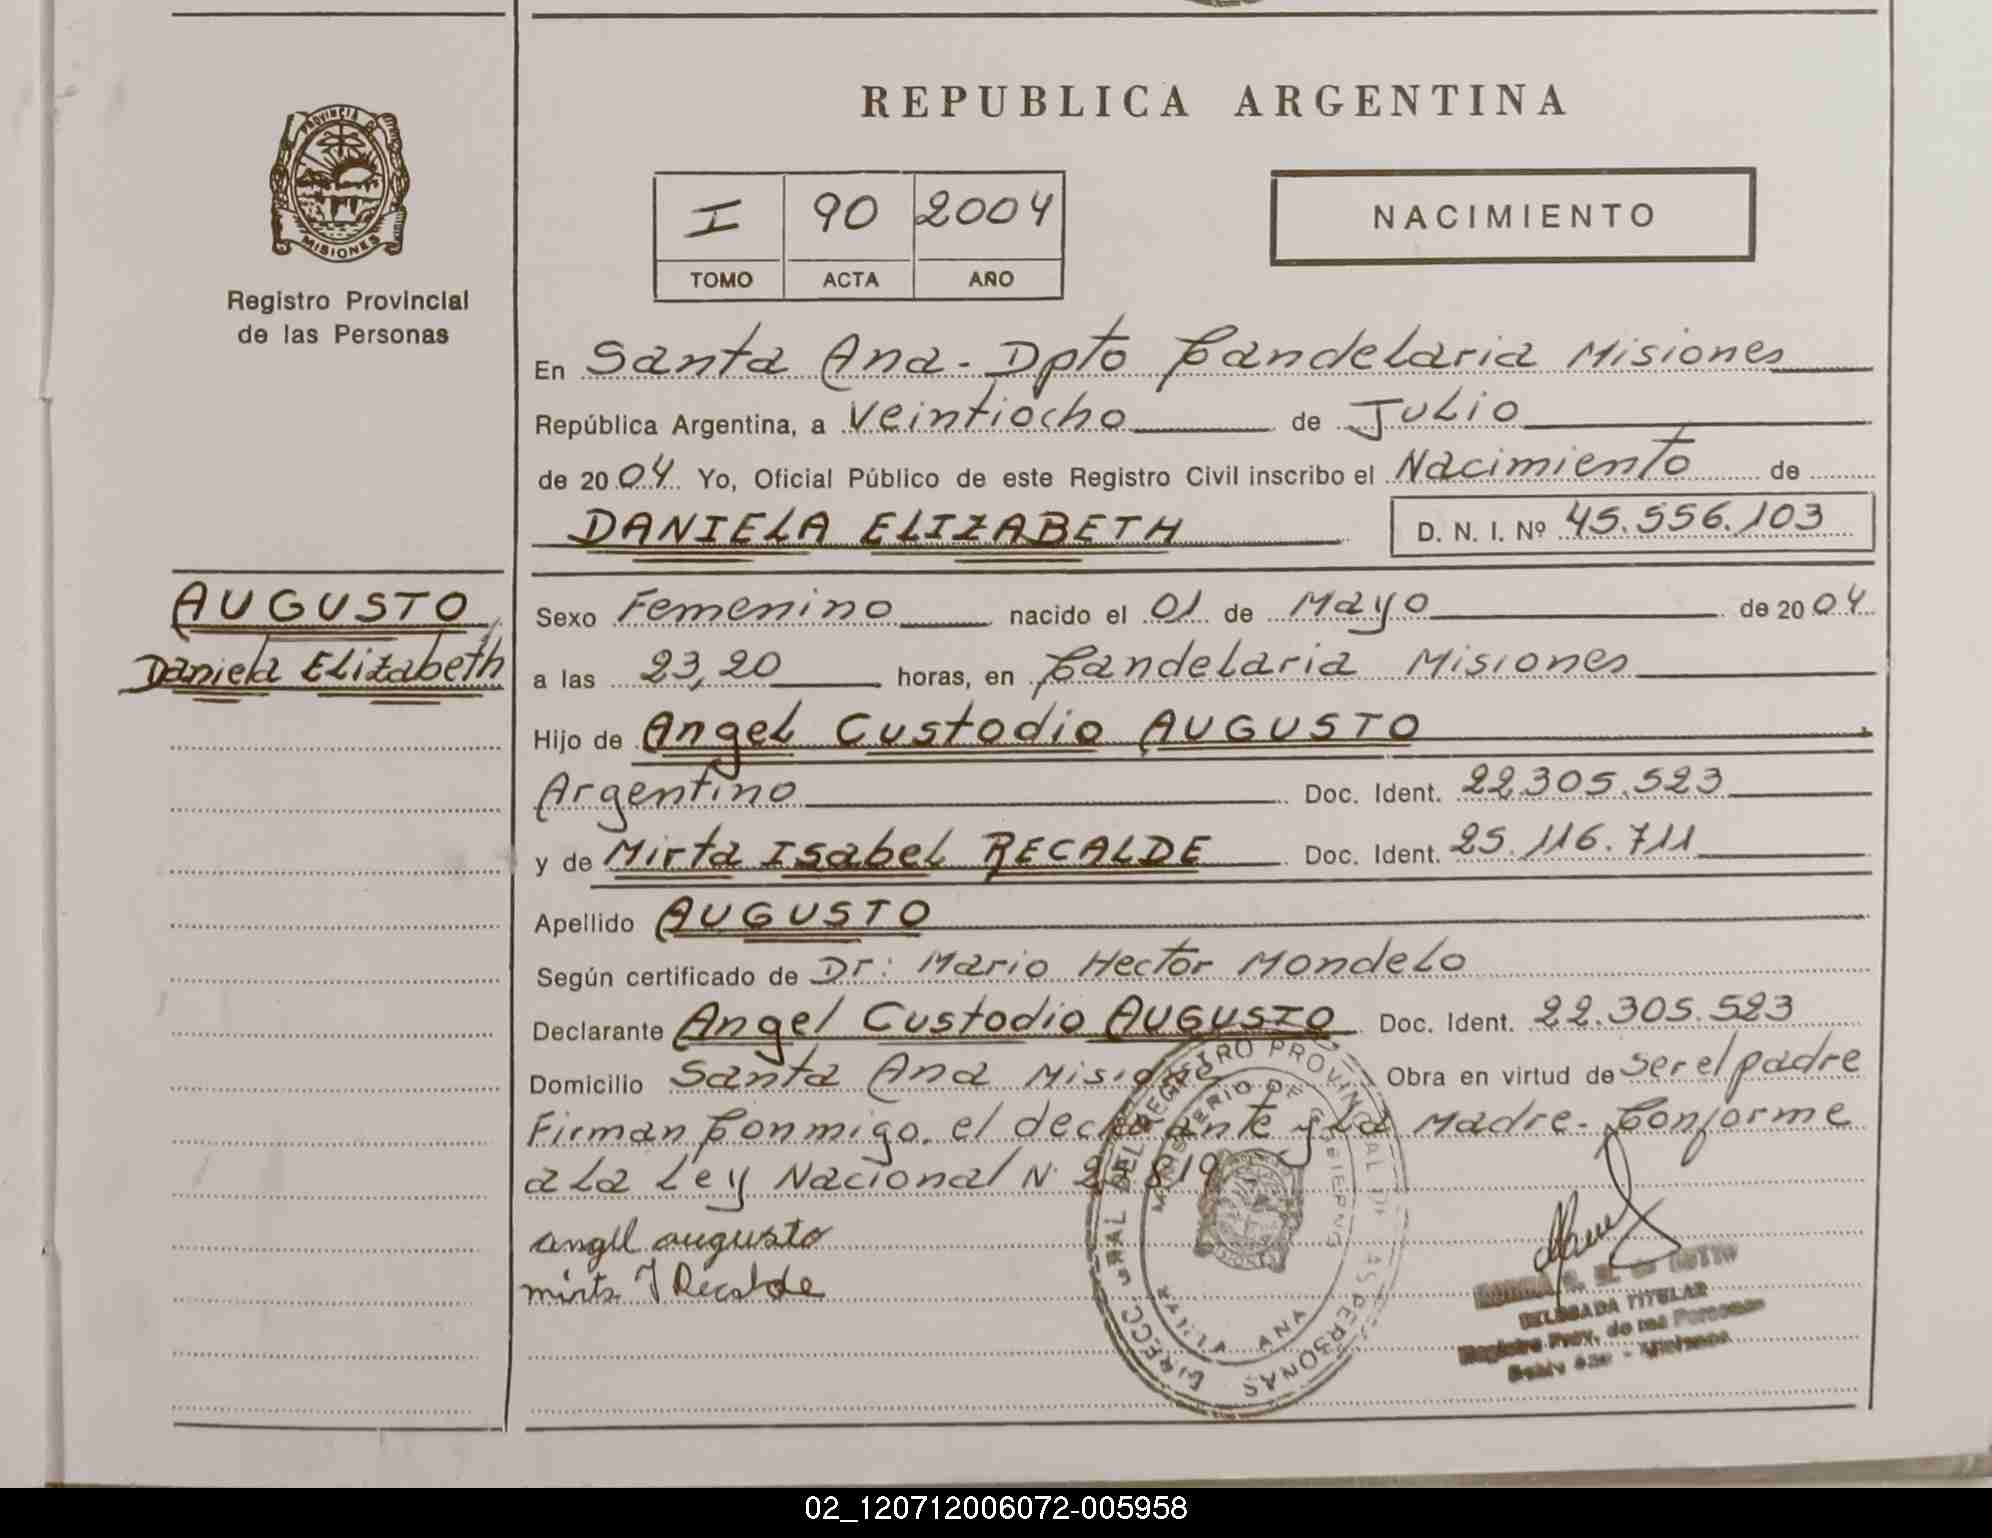 REPUBLICA ARGENTINA
PROVINCIA DE
MISIONES
Registro Provincial
de las Personas
I 90 2004
TOMO ACTA AÑO
NACIMIENTO
En Santa Ana - Dpto Candelaria Misiones
República Argentina, a Veintiocho de Julio
de 2004 Yo, Oficial Público de este Registro Civil inscribo el Nacimiento de
DANIELA ELIZABETH D. N. I. Nº 45.556.103
AUGUSTO
Daniela Elizabeth
Sexo Femenino nacido el 01 de Mayo de 2004
a las 23,20 horas, en Candelaria Misiones
Hijo de Angel Custodio AUGUSTO
Argentino Doc. Ident. 22.305.523
y de Mirta Isabel RECALDE Doc. Ident. 25.116.711
Apellido AUGUSTO
Según certificado de Dr: Mario Hector Mondelo
Declarante Angel Custodio AUGUSTO Doc. Ident. 22.305.523
Domicilio Santa Ana Misiones Obra en virtud de ser el padre
Firman Conmigo. el declarante y la Madre - Conforme
a la Ley Nacional N
angel augusto
mirta I Recalde
REGISTRO PROVINCIAL DE LAS PERSONAS
MINISTERIO DE GOBIERNO
ANA
DELEGADA TITULAR
Registro Prov. de las Personas
Misiones
02_120712006072-005958